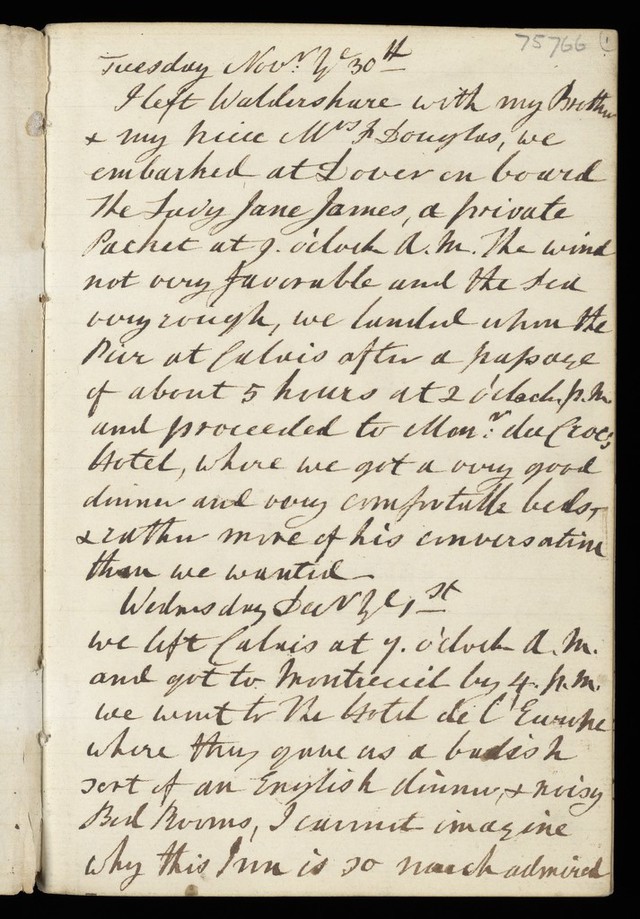 75766 1
Tuesday Novr. ye 30th
I left Waldershare with my Brother
& my niece Mrs F Douglas, we
embarked at Dover on board
the Lady Jane James, a private
Packet at 9. o'clock A.M. The wind
not very favorable and the sea
very rough, we landed upon the
Pier at Calais after a passage
of about 5 hours at 2 o'clock p.m.
and proceeded to Monr. du Crocs
Hotel, where we got a very good
dinner and very comfortable beds,
& rather more of his conversation
than we wanted
Wednesday Decr ye 1st
we left Calais at 9. o'clock A.M.
and got to Montreuil by 4. p.m.
we went to the Hotel de l'Europe
where they gave us a badish
sort of an English dinner, & noisy
Bed Rooms, I cannot imagine
why this Inn is so much admired